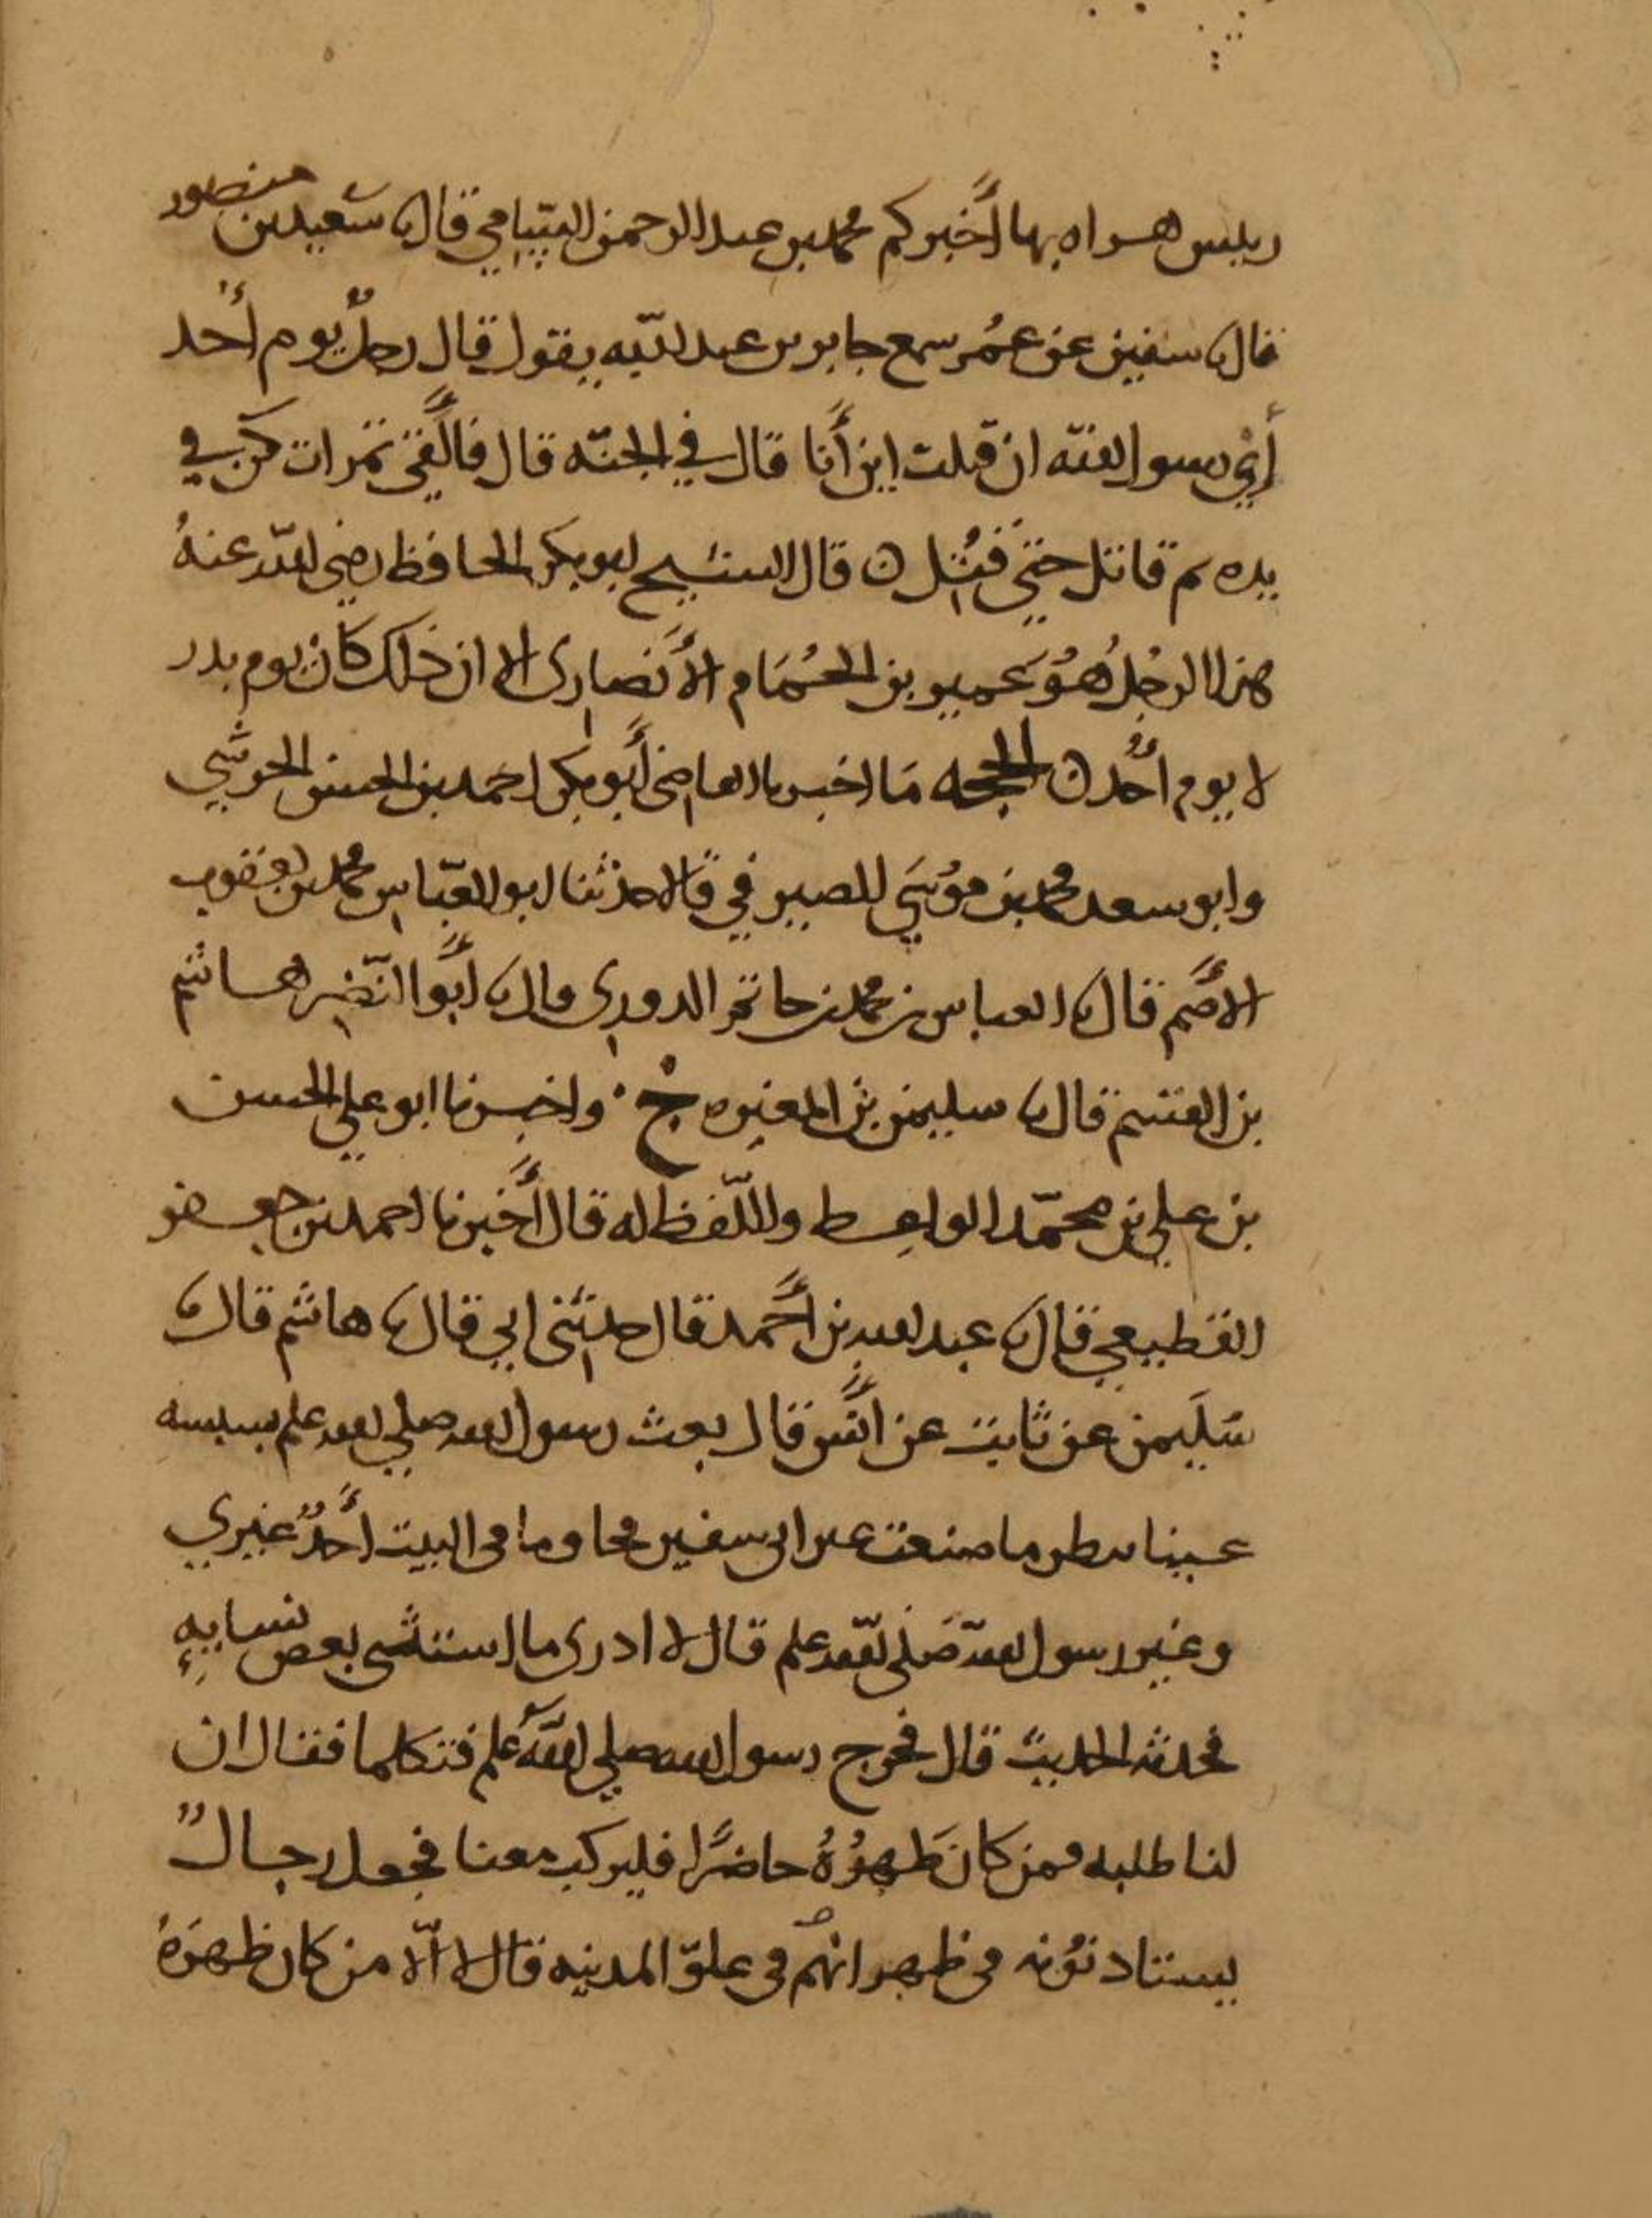 رئيس هراه بها أخبركم محمد بن عبد الرحمن السامي قال نا سعيد بن منصور
قال نا سفين عن عمر سمع جابر بن عبد الله يقول قال رجل يوم أحد
أي رسول الله ان قتلت اين أنا قال في الجنه قال فألقى تمرات كن في
يده ثم قاتل حتى قتل ن قال الشيخ ابو بكر الحافظ رضي الله عنه
هذا الرجل هو عمير بن الحمام الأنصارى الا ان ذلك كان يوم بدر
لا يوم أحد ن الحجه ما اخبرنا القاضى أبو بكر احمد بن الحسن الحرشي
وابو سعد محمد بن موسى الصيرفي قالا حدثنا ابو العباس محمد بن يعقوب
الأصم قال نا العباس بن محمد بن حاتم الدورى قال نا أبو النضر هاشم
بن القسم قال نا سليمن بن المغيره ح واخبرنا ابو علي الحسن
بن علي بن محمد الواعظ واللفظ له قال أخبرنا احمد بن جعفر
القطيعي قال نا عبد الله بن أحمد قال حدثنى ابي قال نا هاشم قال نا
سليمن عن ثابت عن انس قال بعث رسول الله صلى الله علم بسبسه
عينا ينظر ما صنعت عير ابى سفين فجا وما فى البيت أحد غيري
وغير رسول الله صلى الله علم قال لا ادرى ما استثنى بعض نسايه
فحدثه الحديث قال فخرج رسول الله صلى الله علم فتكلم فقال ان
لنا طلبه فمن كان ظهره حاضرا فليركب معنا فجعل رجال
يستاذنونه فى ظهرانهم فى علو المدينه قال لا الا من كان ظهره